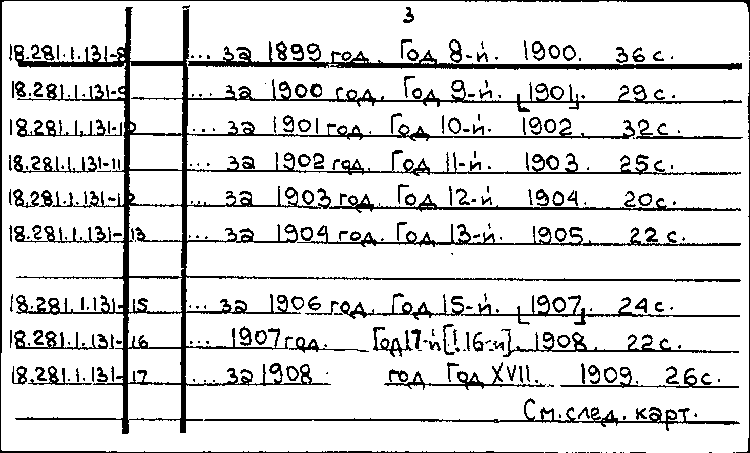 3
18.281.1.131-8 ... за 1899 год. Год 8-й. 1900. 36 с.
18.281.1.131-9 ... за 1900 год. Год 9-й. [1901]. 29 с.
18.281.1.131-10 ... за 1901 год. Год 10-й. 1902. 32 с.
18.281.1.131-11 ... за 1902 год. Год 11-й. 1903. 25 с.
18.281.1.131-12 ... за 1903 год. Год 12-й. 1904. 20 с.
18.281.1.131-13 ... за 1904 год. Год 13-й. 1905. 22 с.
18.281.1.131-15 ... за 1906 год. Год 15-й. [1907]. 24 с.
18.281.1.131-16 ... 1907 год. Год 17-й [!16-й]. 1908. 22 с.
18.281.1.131-17 ... за 1908 год. Год XVII. 1909. 26 с.
См. след. карт.